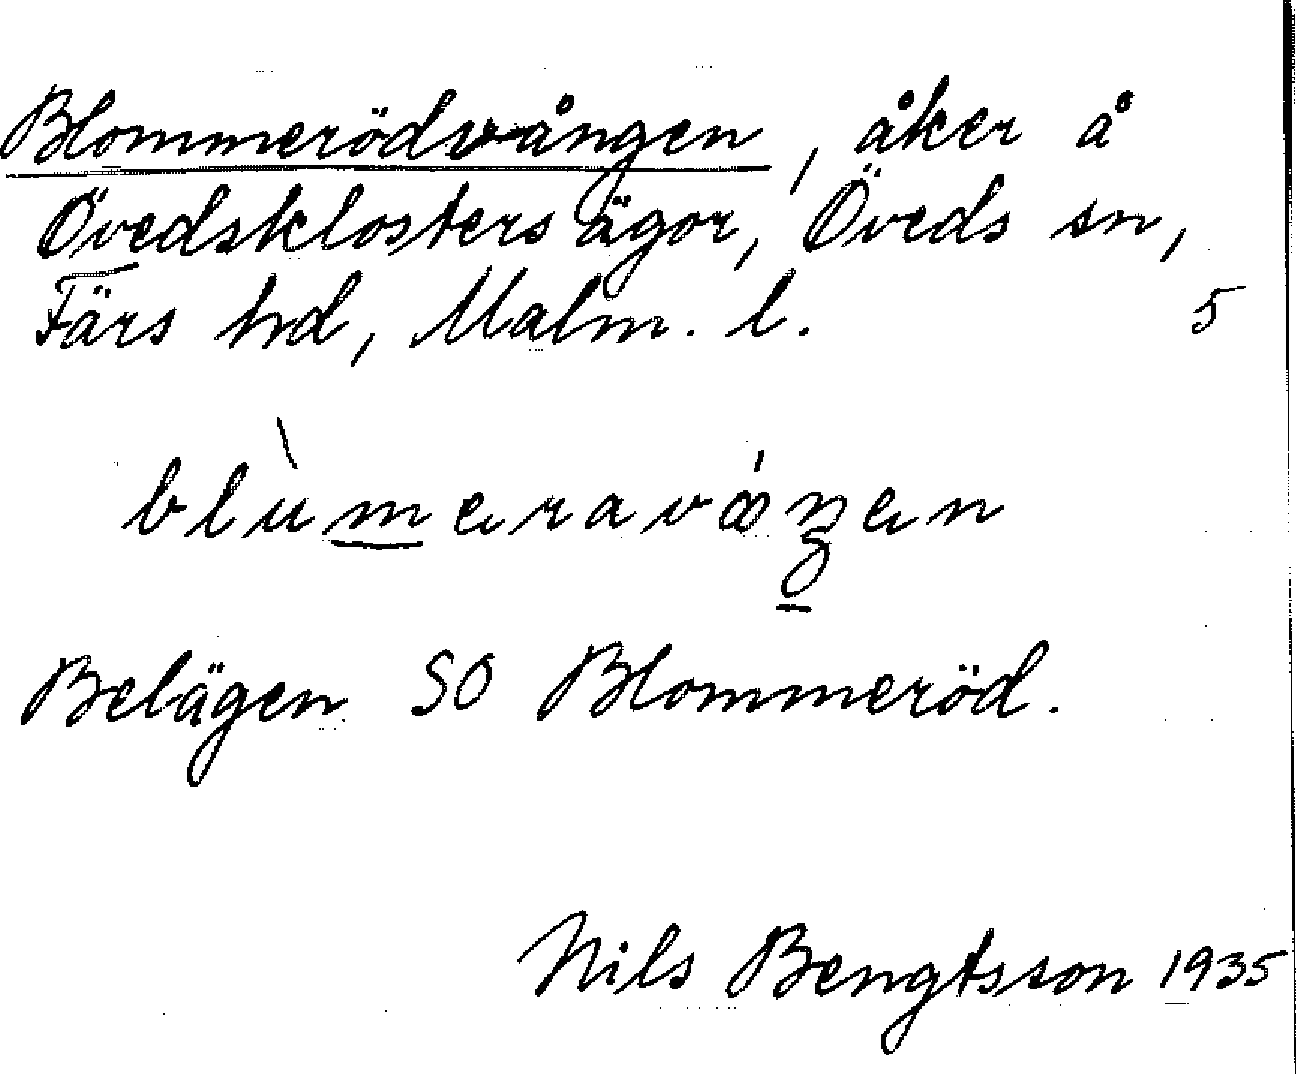 Blommerödvången, åker å
Övedsklosters ägor, Öveds sn,
Färs hd, Malm. l. 5
blùmeravángen
Belägen SO Blommeröd.
Nils Bengtsson 1935